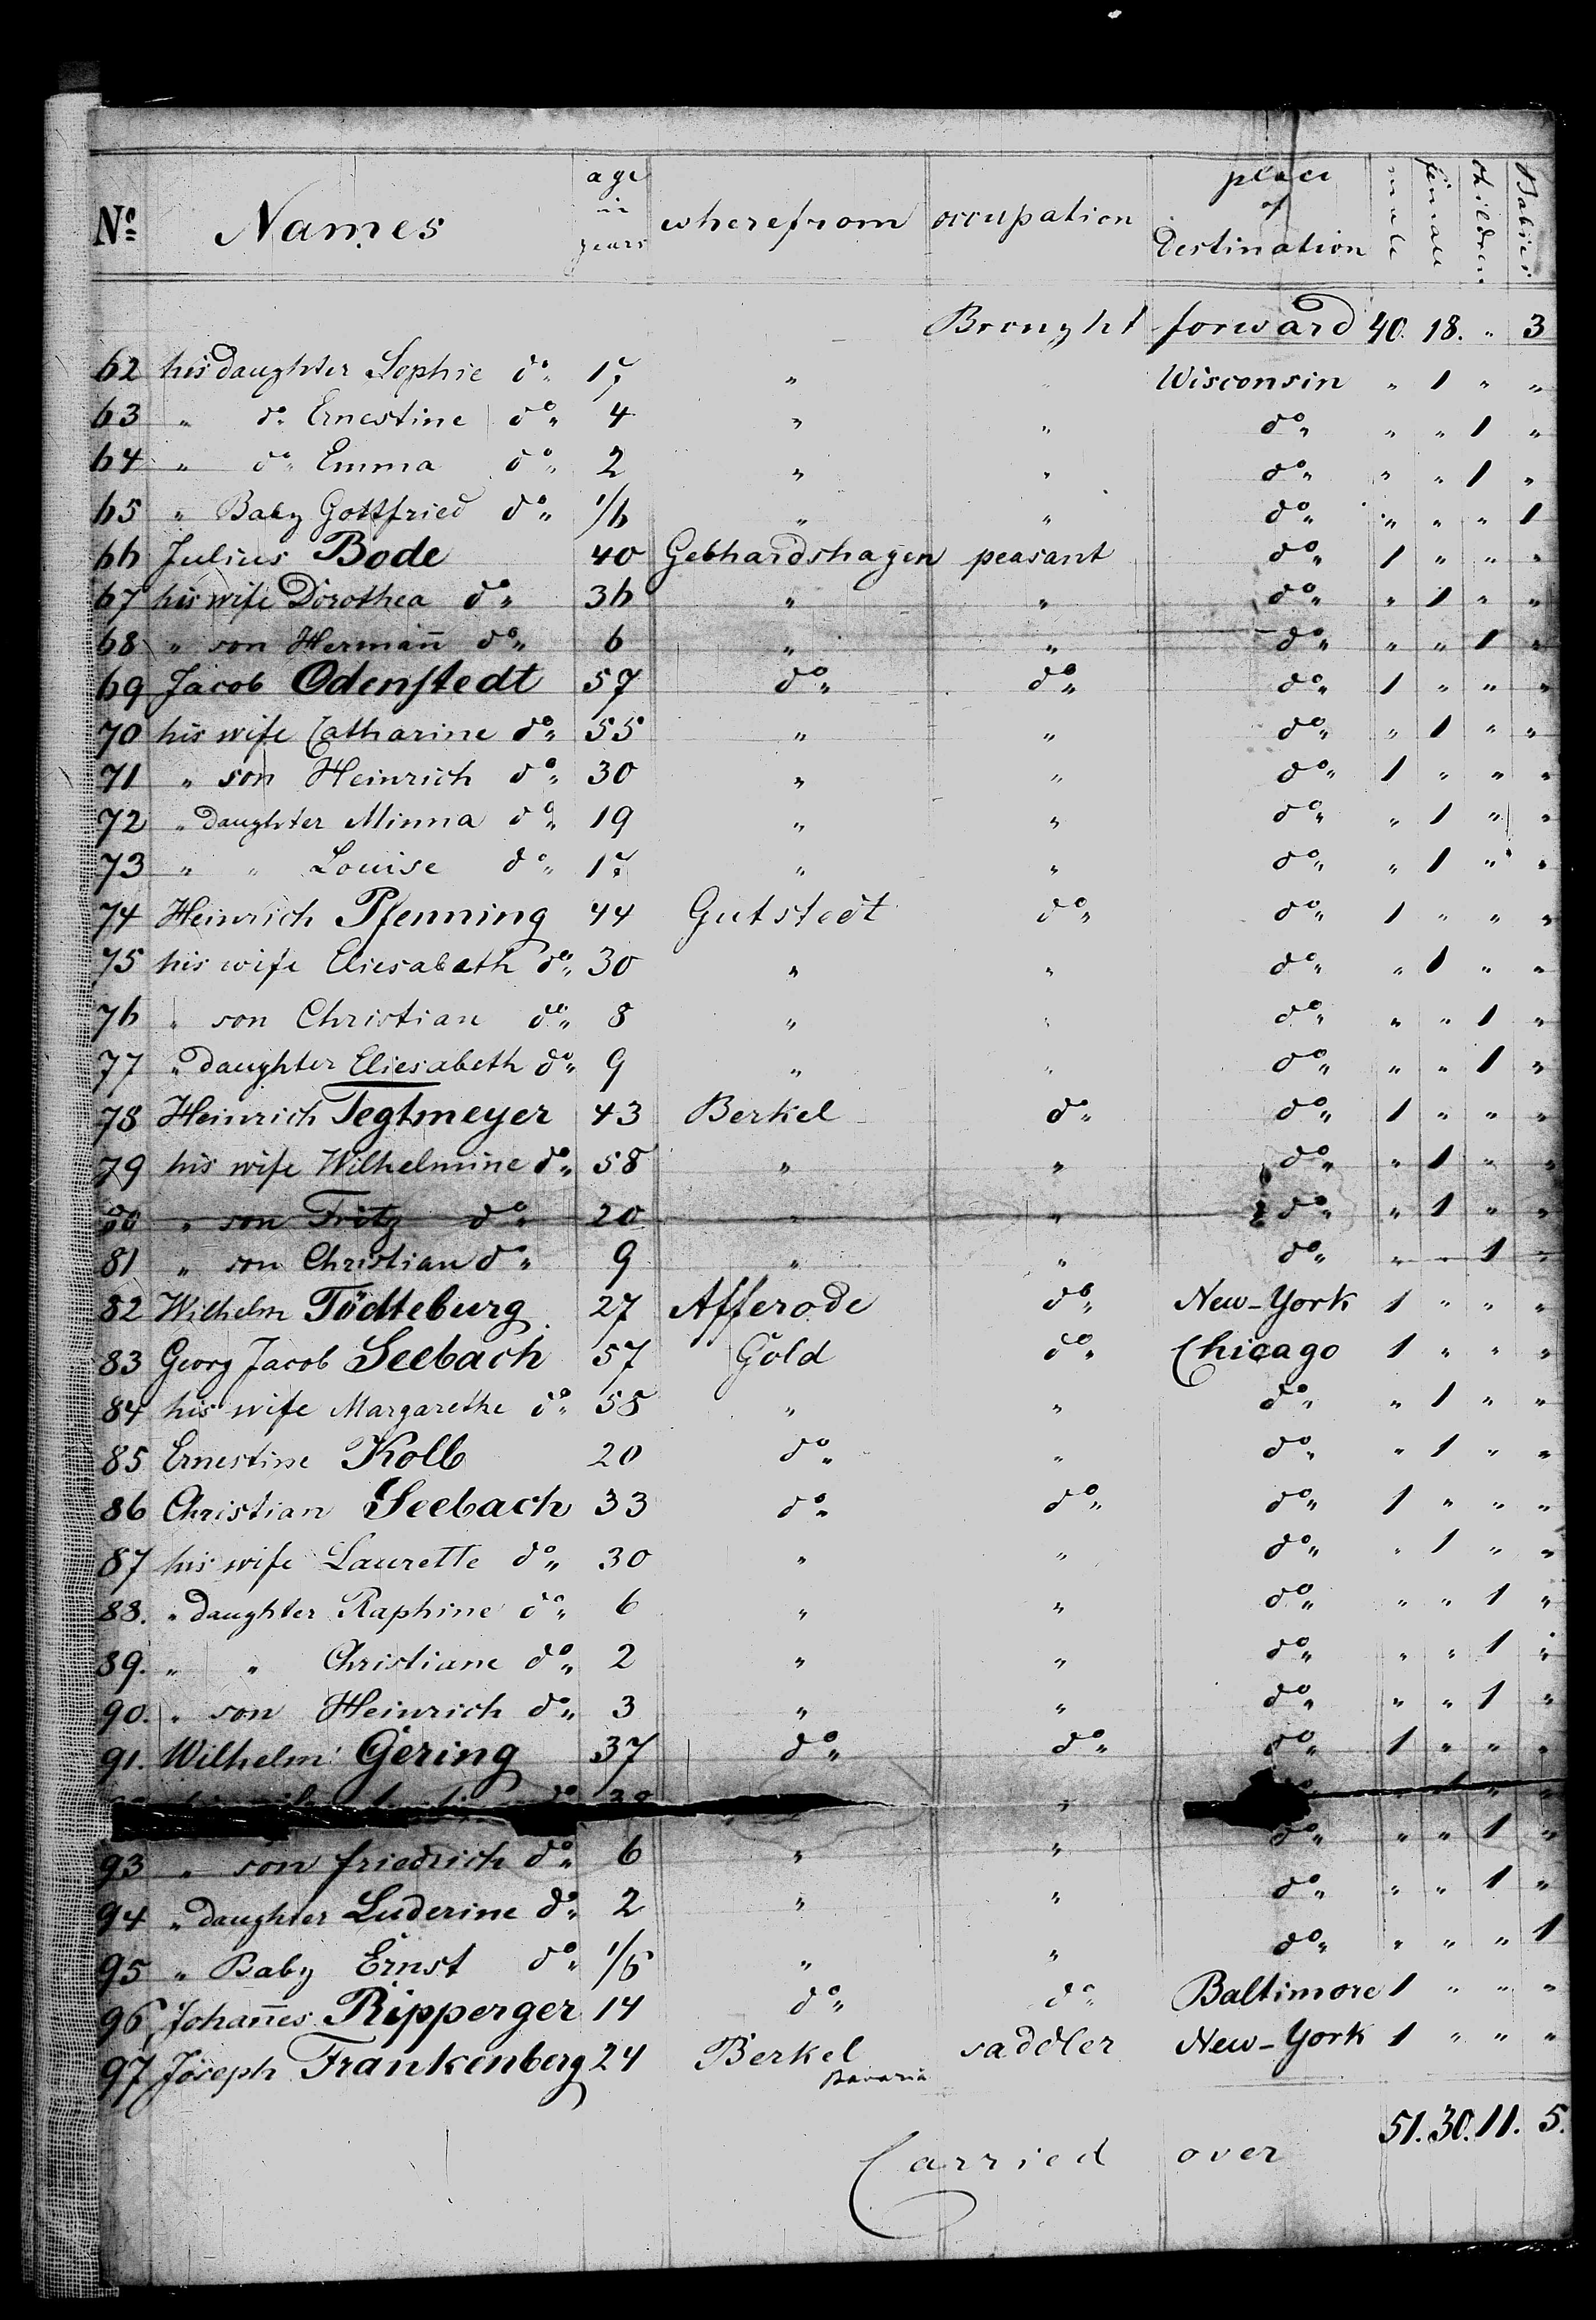 Nº Names age in years wherefrom occupation place of Destination male female children Babies
Brought forward 40. 18. " 3
62 his daughter Sophie do " 17 " " Wisconsin " 1 " "
63 " do Ernestine do " 4 " " do " " " 1 "
64 " do " Emma do " 2 " " do " " " 1 "
65 " Baby Gottfried do " 1/6 " " do " " " " 1
66 Julius Bode 40 Gebhardshagen peasant do " 1 " " "
67 his wife Dorothea do " 36 " " do " " 1 " "
68 " son Hermañ do " 6 " " do " " " 1 "
69 Jacob Odenstedt 57 do " do " do " 1 " " "
70 his wife Catharine do " 55 " " do " " 1 " "
71 " son Heinrich do " 30 " " do " 1 " " "
72 " daughter Minna do " 19 " " do " " 1 " "
73 " " Louise do " 17 " " do " " 1 " "
74 Heinrich Pfenning 44 Gutstedt do " do " 1 " " "
75 his wife Eliesabeth do " 30 " " do " " 1 " "
76 " son Christian do " 8 " " do " " " 1 "
77 " daughter Eliesabeth do " 9 " " do " " " 1 "
78 Heinrich Tegtmeyer 43 Berkel do " do " 1 " " "
79 his wife Wilhelmine do " 58 " " do " " 1 " "
80 " son Fritz do " 20 " " do " " 1 " "
81 " son Christian do " 9 " " do " " " 1 "
82 Wilhelm Tödteburg 27 Afferode do " New-York 1 " " "
83 Georg Jacob Seebach 57 Gold do " Chicago 1 " " "
84 his wife Margarethe do " 58 " " do " " 1 " "
85 Ernestine Kolb 20 do " " do " " 1 " "
86 Christian Seebach 33 do " do " do " 1 " " "
87 his wife Laurette do " 30 " " do " " 1 " "
88. " daughter Raphine do " 6 " " do " " " 1 "
89. " " Christiane do " 2 " " do " " " 1 "
90. " son Heinrich do " 3 " " do " " " 1 "
91. Wilhelm Gering 37 do " do " do " 1 " " "
do 38 "
93 " son friedrich do " 6 " " do " " " 1 "
94 " daughter Luderine do " 2 " " do " " " 1 "
95 " Baby Ernst do " 1/6 " " do " " " " 1
96, Johañes Ripperger 14 do " do " Baltimore 1 " " "
97 Joseph Frankenberg 24 Berkel saddler New-York 1 " " "
Bavaria
51. 30. 11. 5.
Carried over